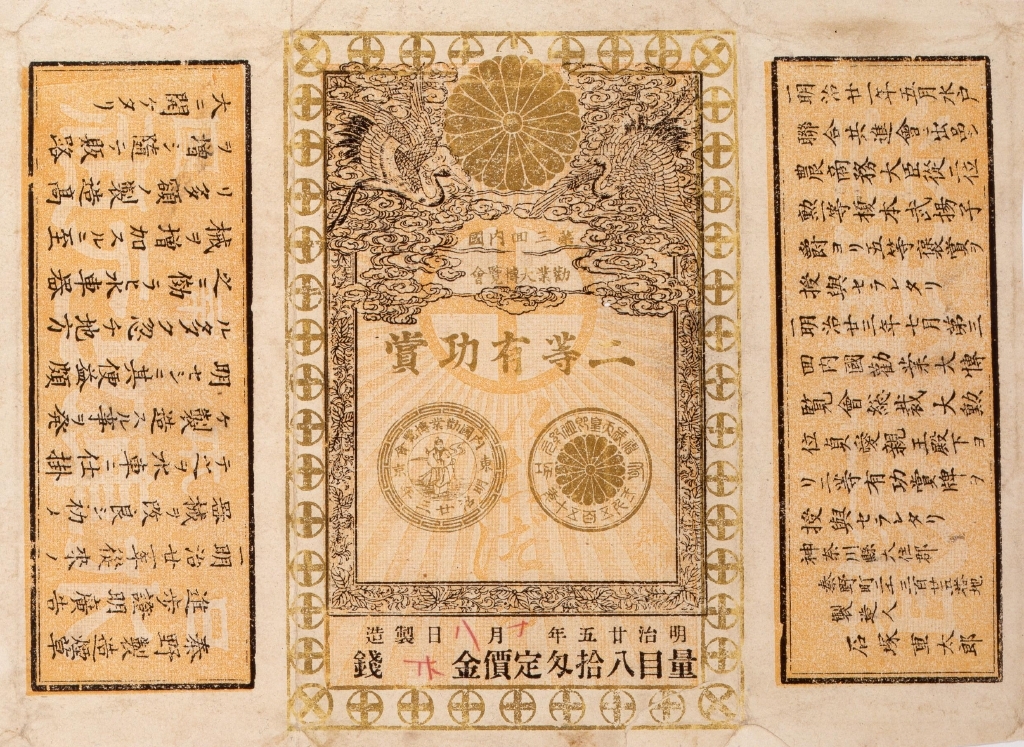 第三回内國
勸業大博覧會
二等有功賞
内國勸業博覧會
明治廿三年
明治廿五年十月八日製造
量目八拾匁定價金 錢
一明治廿一年五月水戸
聯合共進會ニ出品シ
農商務大臣從二位
勲一等榎本武揚子
爵ヨリ五等褒賞ヲ
授與セラレタリ
一明治廿三年七月第三
回内國勸業大博
覧會総裁大勲
位貞愛親王殿下ヨ
リ二等有功賞牌ヲ
授與セラレタリ
神奈川縣大住郡
秦野町 三百廿五番地
製造人
石塚重太郎
秦野製造煙草
進歩證明廣告
一明治廿一年從来ノ
器械ヲ改良シ初メ
テ之ヲ水車ニ仕掛
ケ製造スル事ヲ發
明セシニ其便益頗
ル多ク忽チ地方
之ニ倣ヒ水車器
械ヲ増加スルニ至
リ多額ノ製造高
ヲ増シ隨テ販路
大ニ開ケタリ